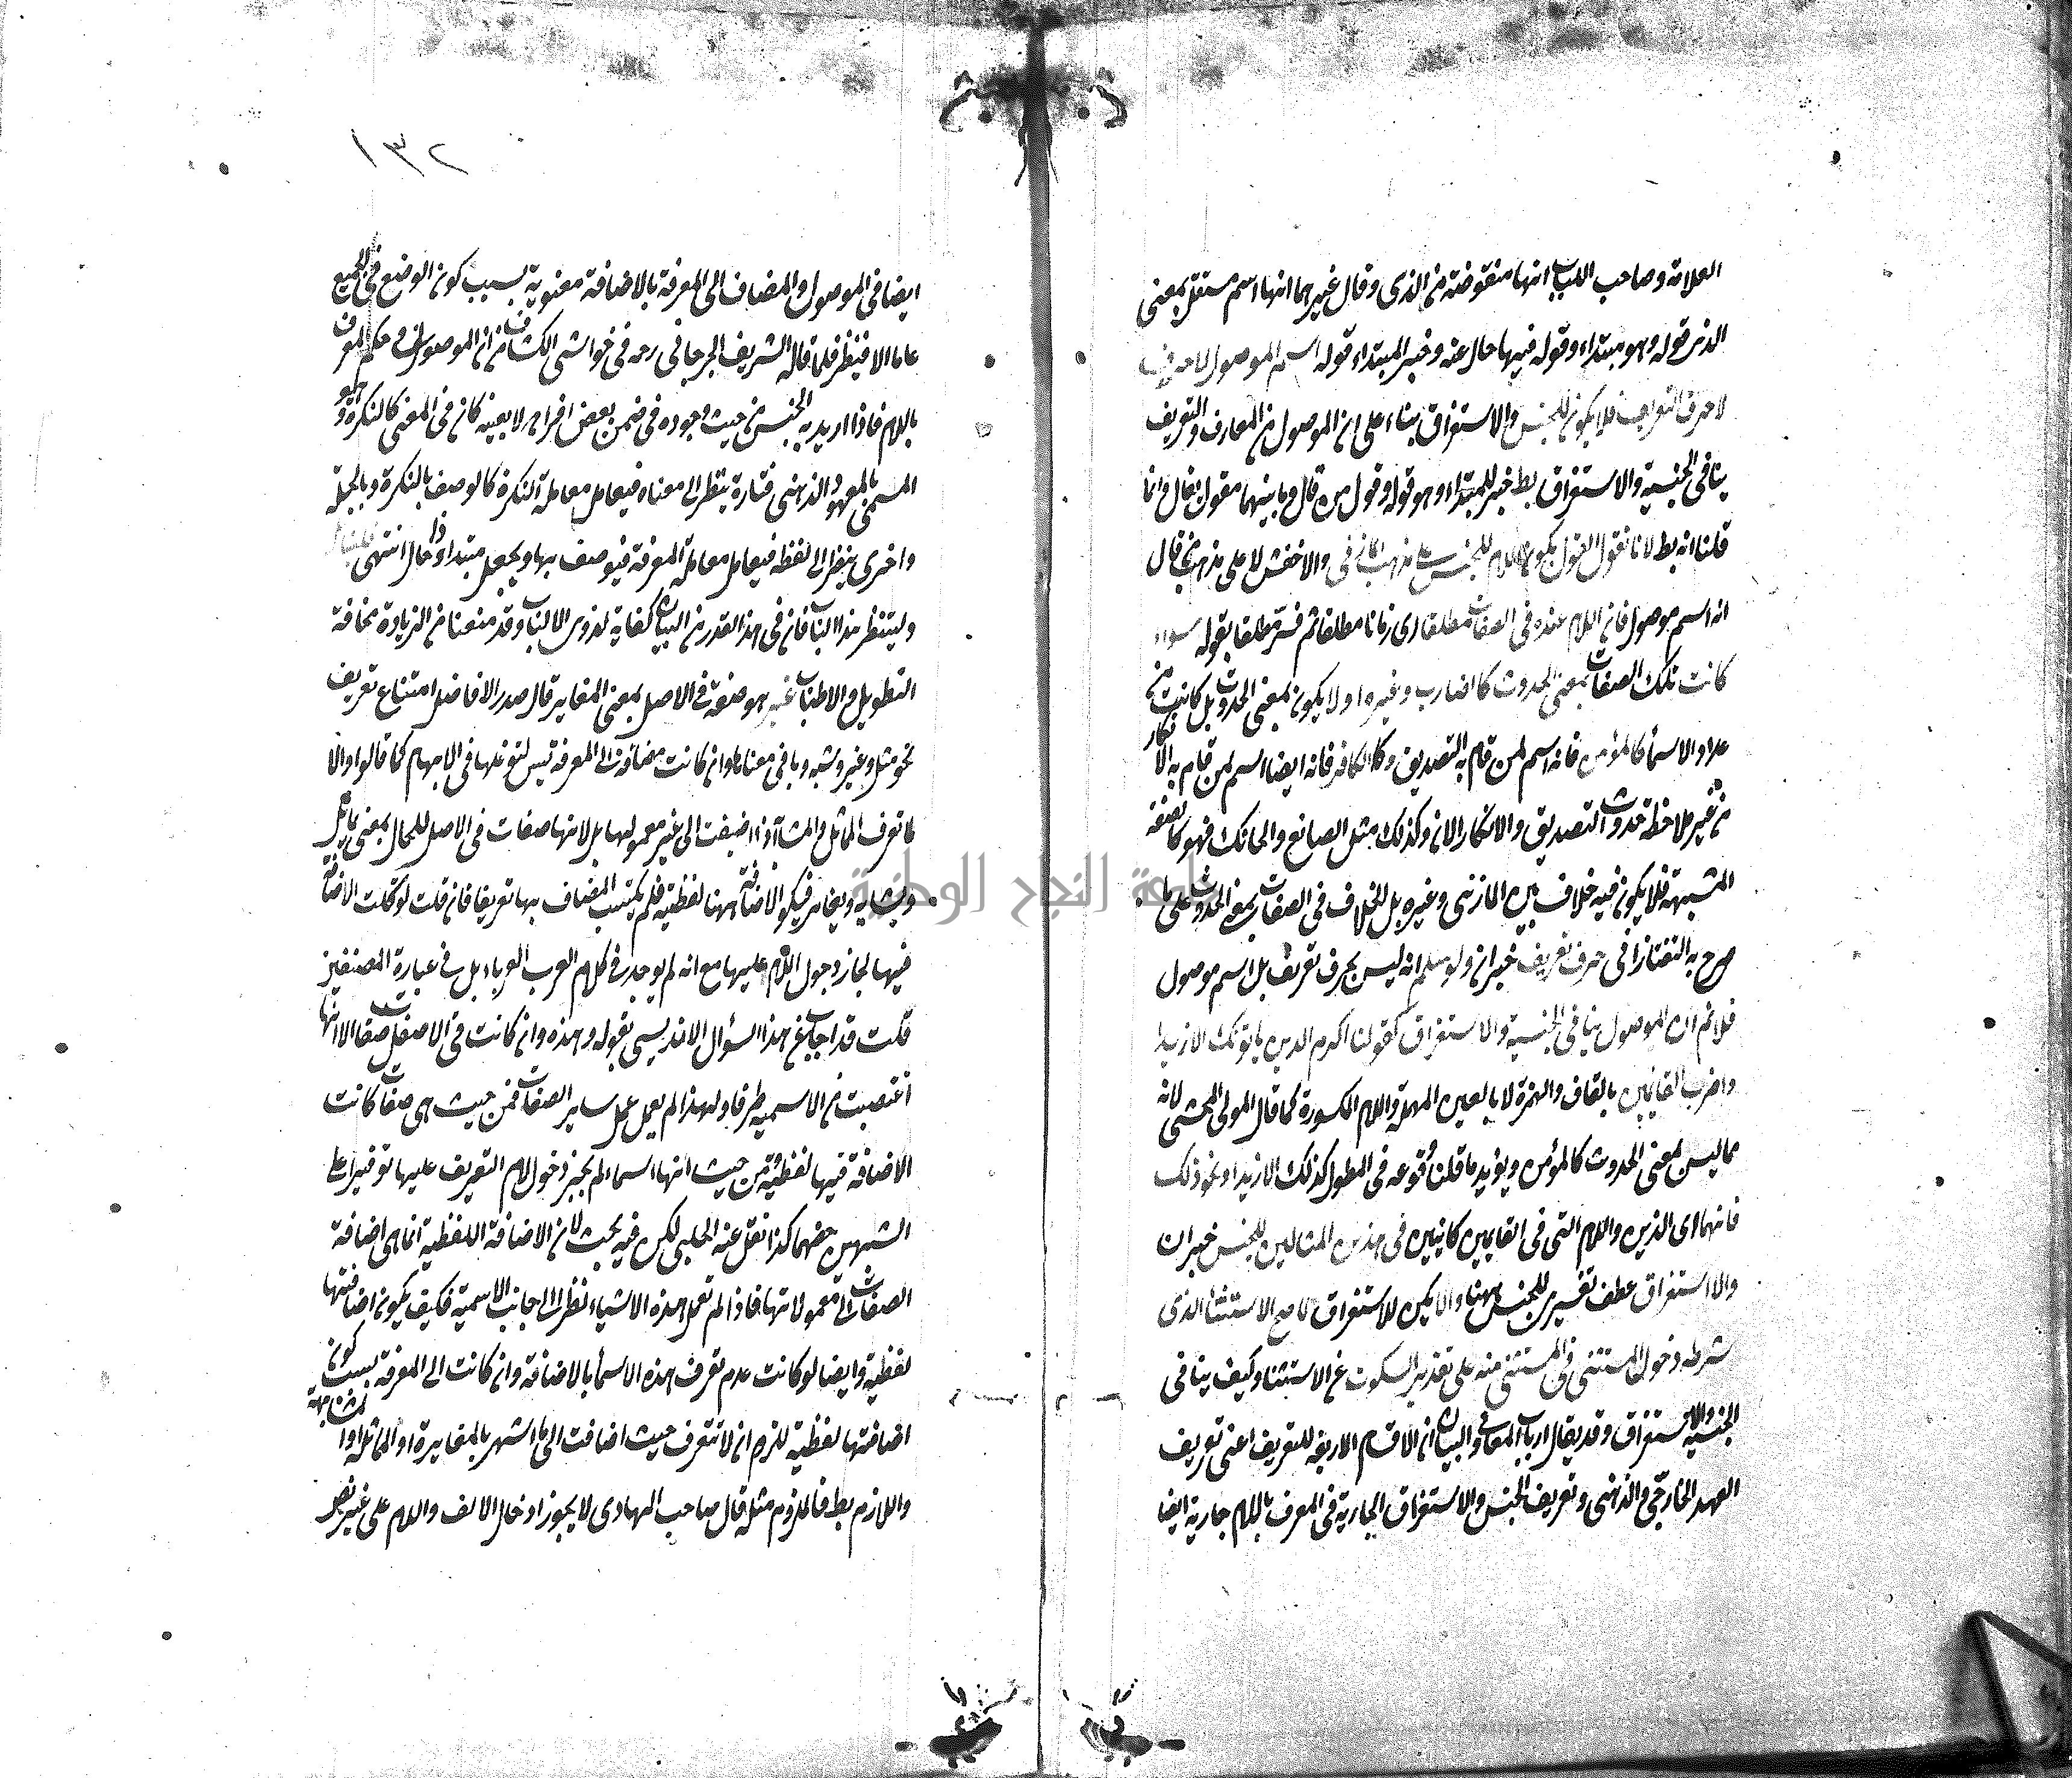 العلامة وصاحب اللباب انها منقوضة من الذى وقال غيرهما انها اسم مستقل بمعنى
الذى قوله وهو مبتداء وقوله فيها حال عنه وخبر المبتداء قوله اسم الموصول لا حرف
لا حرف التعريف فلا يكون للجنس والاستغراق بناء على ان الموصول من المعارف والتعريف
ينافى الجنسية والاستغراق بط خبر للمبتداء وهو قوله وقول من قال وما بينهما مقول قال وانما
قلنا انه بط لانا نقول القول بكون اللام للجنس على مذهب المازنى والاخفش لا على مذهب من قال
انه اسم موصول فان اللام عنده فى الصفات مطلقا اى زمانا مطلقا ثم فسر مطلقا بقوله سواء
كانت تلك الصفات بمعنى الحدوث كالضارب وغيره او لا يكون بمعنى الحدوث بل كانت من
عداد الاسماء كالمؤمن فانه اسم لمن قام به التصديق وكالكافر فانه ايضا اسم لمن قام به الانكار
من غير ملاحظة حدوث التصديق والانكار الان وكذلك مثل الصانع والحائك فهو كالصفة
المشبهة فلا يكون فيه خلاف بين المازنى وغيره بل الخلاف فى الصفات بمعنى الحدوث على ما
صرح به التفتازانى حرف تعريف خبر ان ولو سلم انه ليس بحرف تعريف بل اسم موصول
فلا نم ان الموصول ينافى الجنسية والاستغراق كقولنا اكرم الذين ياتونك الا زيدا
واضرب القائمين بالقاف والهمزة لا بالعين المهملة واللام المكسورة كما قال المولى المحشى لانه
مما ليس بمعنى الحدوث كالمؤمن ويؤيد ما قلنا وقوعه فى المطول كذلك الا زيدا ونحو ذلك
فانهما اى الذين واللام التى فى القايمين كائنين فى هذين المثالين للجنس خبر ان
والاستغراق عطف تفسير للجنس ههنا والا يكن للاستغراق لا صح الاستثناء الذى
شرطه دخول المستثنى فى المستثنى منه على تقدير السكوت عن الاستثنا وكيف ينافى
الجنسية والاستغراق وقد يقال ارباب المعانى والبيان ان الاقسام الاربعة للتعريف اعنى تعريف
العهد الخارجى والذهنى وتعريف الجنس والاستغراق الجارية فى المعرف باللام جارية ايضا
١٣٢
ايضا فى الموصول والمضاف الى المعرفة بالاضافة معنوية بسبب كون الوضع فى الجميع
عاما الا فينظر فلما قاله الشريف الجرجانى رحه فى حواشى الكشاف من ان الموصول فى حكم المعرف
باللام فاذا اريد به الجنس من حيث وجوده فى ضمن بعض افراده لا بعينه كان فى المعنى كالنكرة وهو
المسمى بالمعهود الذهنى فتارة ينظر الى معناه فيعامل معاملة النكرة كالوصف بالنكرة وبالجملة
واخرى ينظر الى لفظه فيعامل معاملة المعرفة فيوصف بها ويجعل مبتداء وذا حال انتهى
ولينظر هذا البناء فان فى هذا القدر من البيان كفاية لذوى الالباب وقد منعنا من الزيادة مخافة
التطويل والاطناب غير هو صفة فى الاصل بمعنى المغاير قال صدر الافاضل امتناع تعريف
نحو مثل وغير وشبه وما فى معناها وان كانت مضافة الى المعرفة ليس لتوغلها فى الابهام كما قالوا والا
لما تعرف المماثل والمشابه اذا اضيفت الى غير معمولها بل لانها صفات فى الاصل للحال بمعنى يماثل
ويشابه ويغاير فيكون الاضافة ههنا لفظية فلم يكتسب المضاف بها تعريفا فان قلت لو كانت الاضافة
فيها لجاز دخول اللام عليها مع انه لم يوجد فى كلام العرب العرباء بل فى عبارة المصنفين
قلت قد اجاب عن هذا السؤال الاندلسى بقوله وهذه وان كانت فى الاصل صفات الا انها
اغتصبت من الاسمية طرفا ولهذا لم يعمل عمل ساير الصفات فمن حيث هى صفات كانت
الاضافة فيها لفظية ومن حيث انها اسماء لم يجز دخول لام التعريف عليها توفيرا على
الشبهين حقهما كذا نقل عنه الحلبى لكن فيه بحث لان الاضافة اللفظية انما هى اضافة
الصفات الى معمولاتها فاذا لم تعمل هذه الاشياء نظرا الى جانب الاسمية فكيف يكون اضافتها
لفظية وايضا لو كانت عدم تعرف هذه الاسماء بالاضافة وان كانت الى المعرفة بسبب كون
اضافتها لفظية للزم ان لا تتعرف حيث اضافت الى ما اشتهر بالمغايرة او المماثلة او المشابهة
واللازم بط فالملزوم مثله قال صاحب الهادى لا يجوز ادخال الالف واللام على غير
جامعة النجاح الوطنية